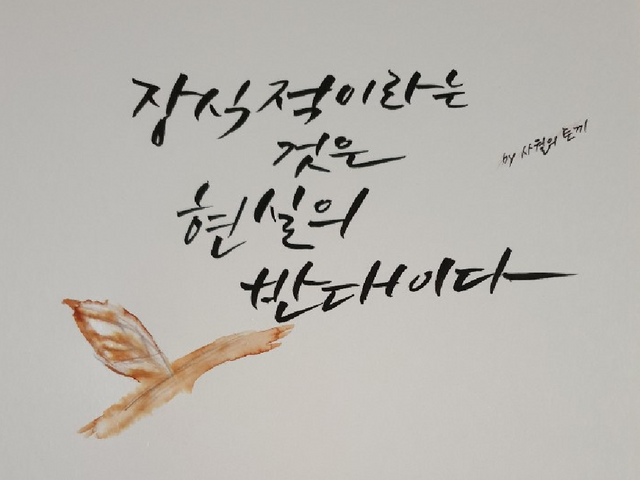 장식적이라는
것은
현실의
반대이다
by 사월의 토끼